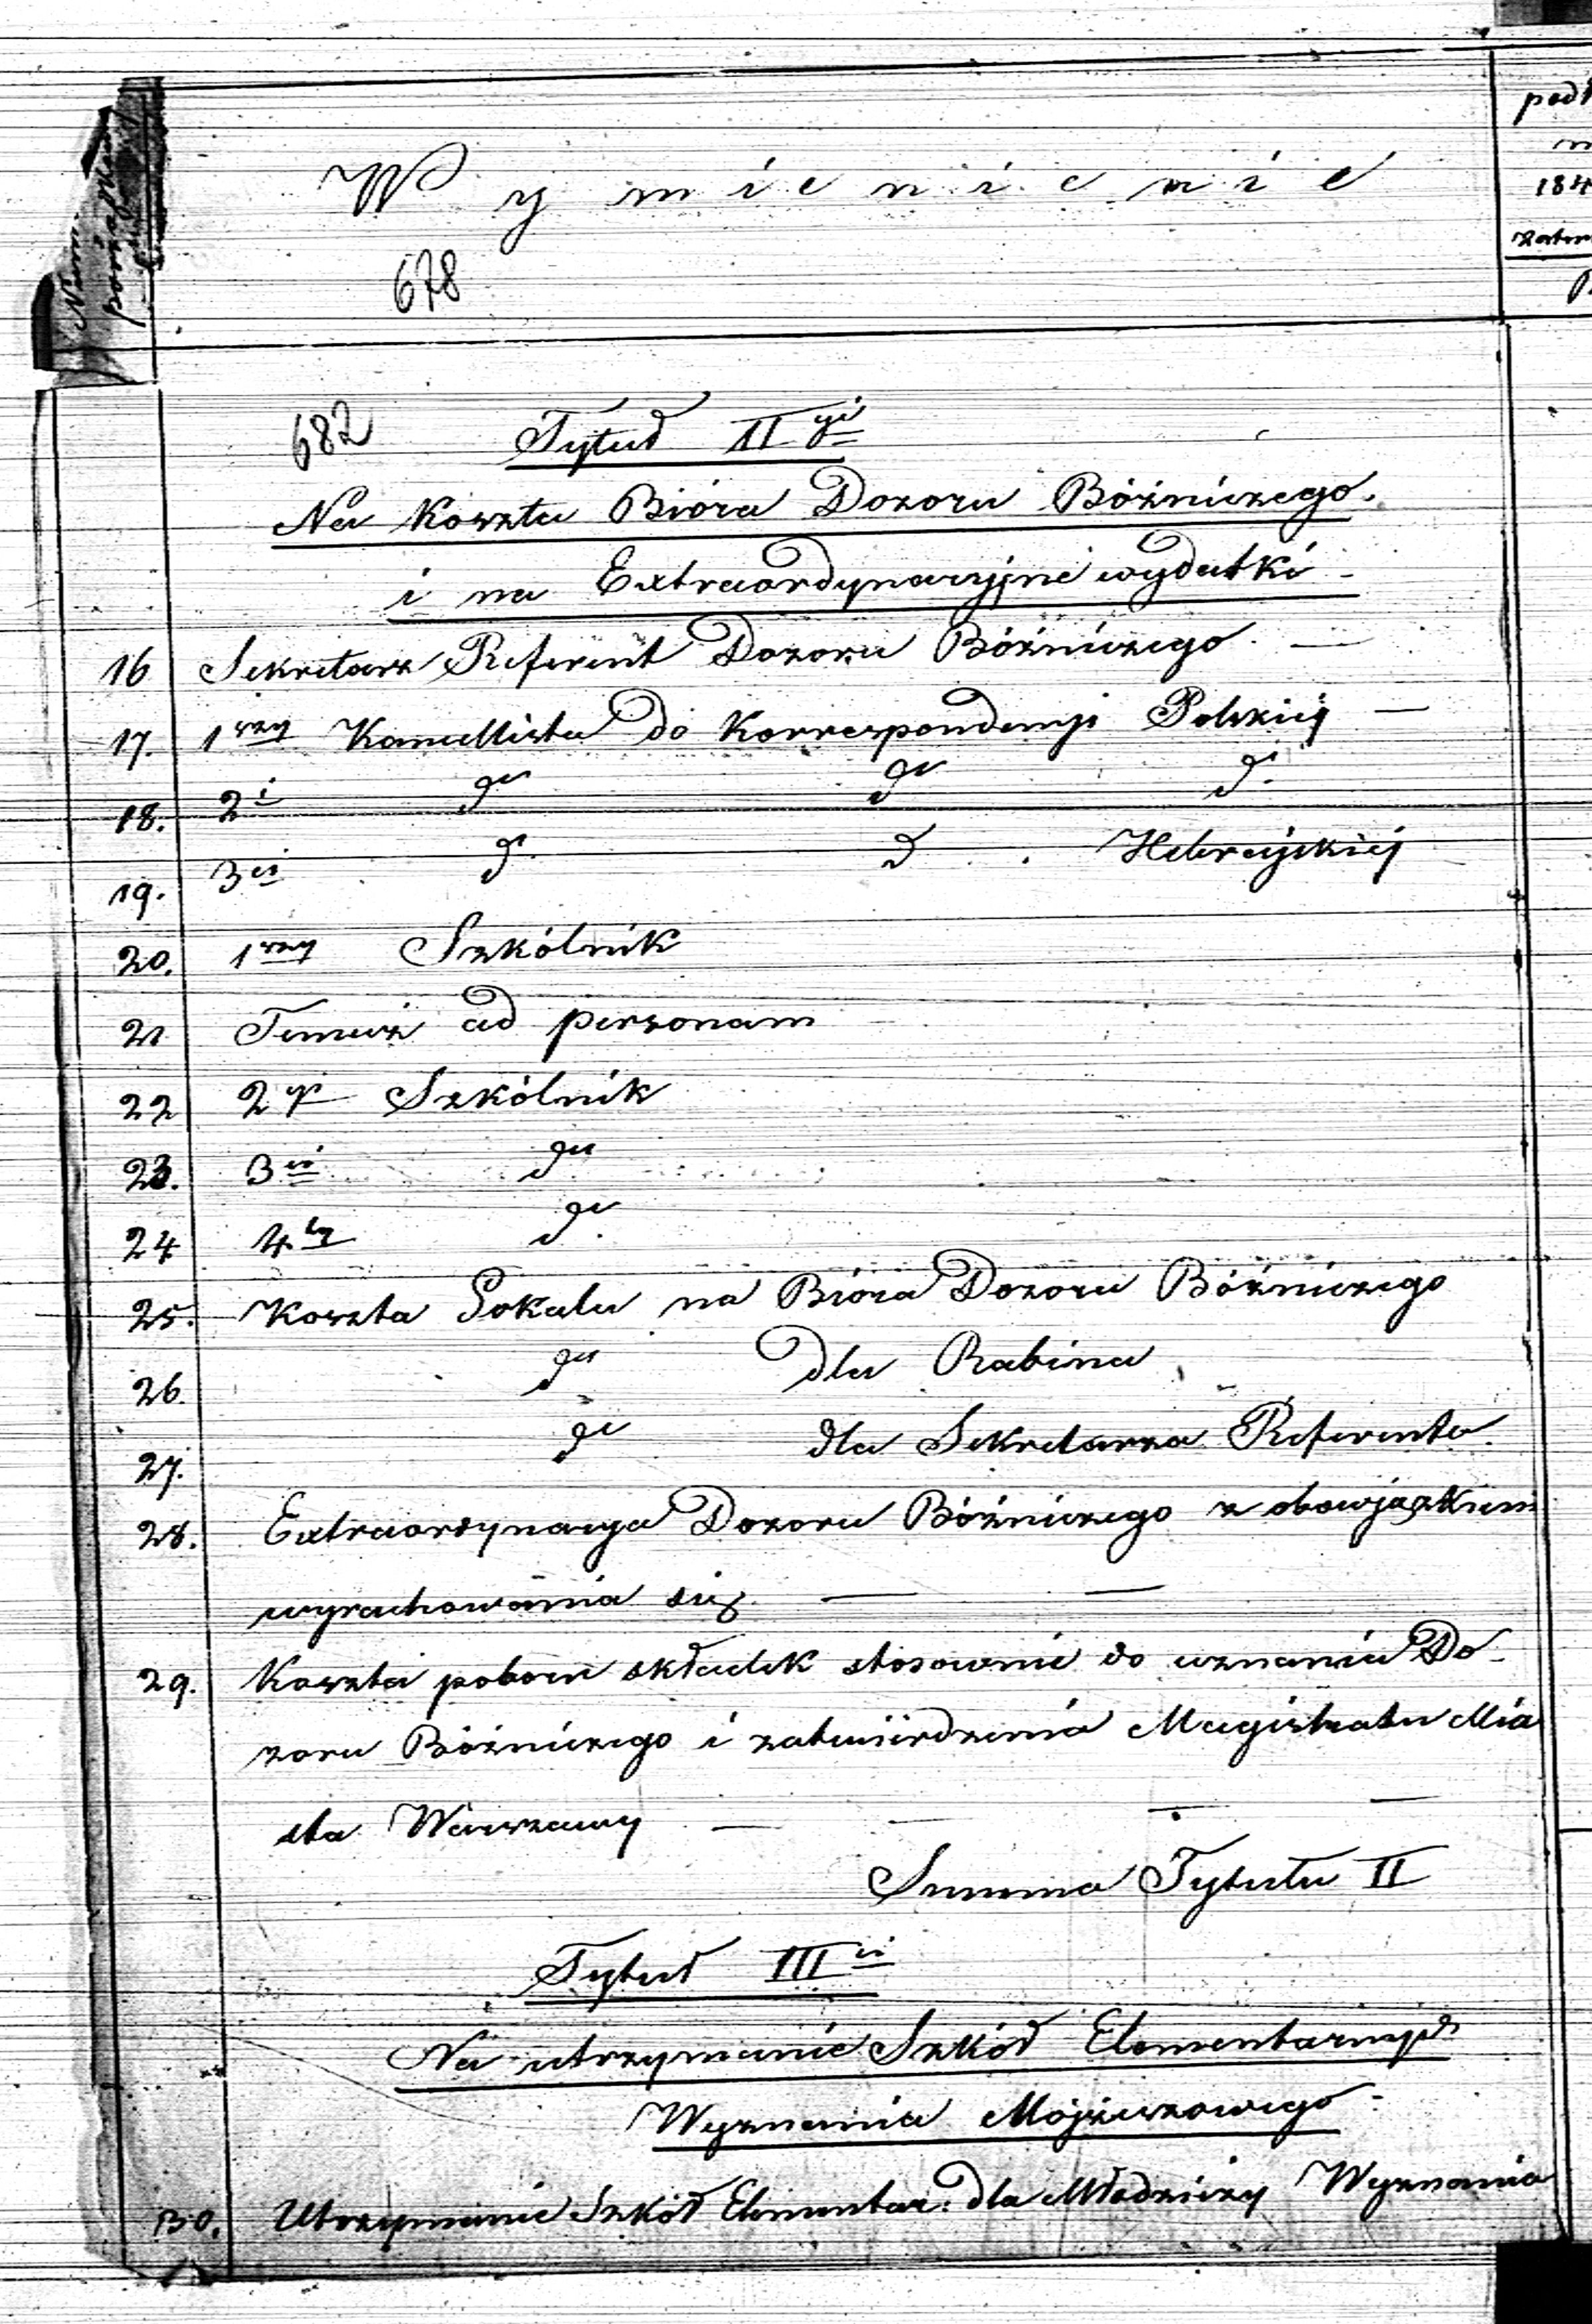 Wymienienie
678
682 Tytuł II gi
Na Koszta Bióra Dozoru Bóżniczego.
i na Extraordynacyjne wydatki
16 Sekretarz Referent Dozoru Bóżniczego —
17. 1wszy Kancellista do Korrespondencyi Polskiéj —
18. 2i do do do
19. 3ci do do Hebrajskiéj
20. 1wszy Szkólnik
21 Temuż ad personam
22 2gi Szkólnik
23. 3ci do
24 4ty do
25. Koszta Lokalu na Bióra Dozoru Bóżniczego
26. do dla Rabina
27. do dla Sekretarza Referenta
28. Extraordynacya Dozoru Bóżniczego z obowiązkiem
wyrachowania się — —
29. Koszta poboru składek stosownie do uznania Do-
zoru Bóżniczego i zatwierdzenia Magistratu Mia
sta Warszawy — — — —
Summa Tytułu II
Tytuł III ci
Na utrzymanie Szkół Elementarnych
Wyznania Mojżeszowego
30. Utrzymanie Szkół Elementar: dla Młodzieży Wyznania